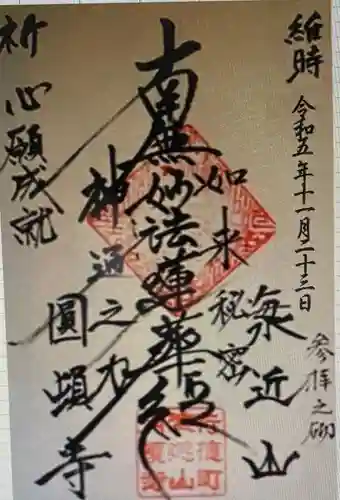 維時
令和五年十一月二十三日
参拝之砌
如来秘密
海近山
南無妙法蓮華経
神通之力
圓頓寺
祈心願成就